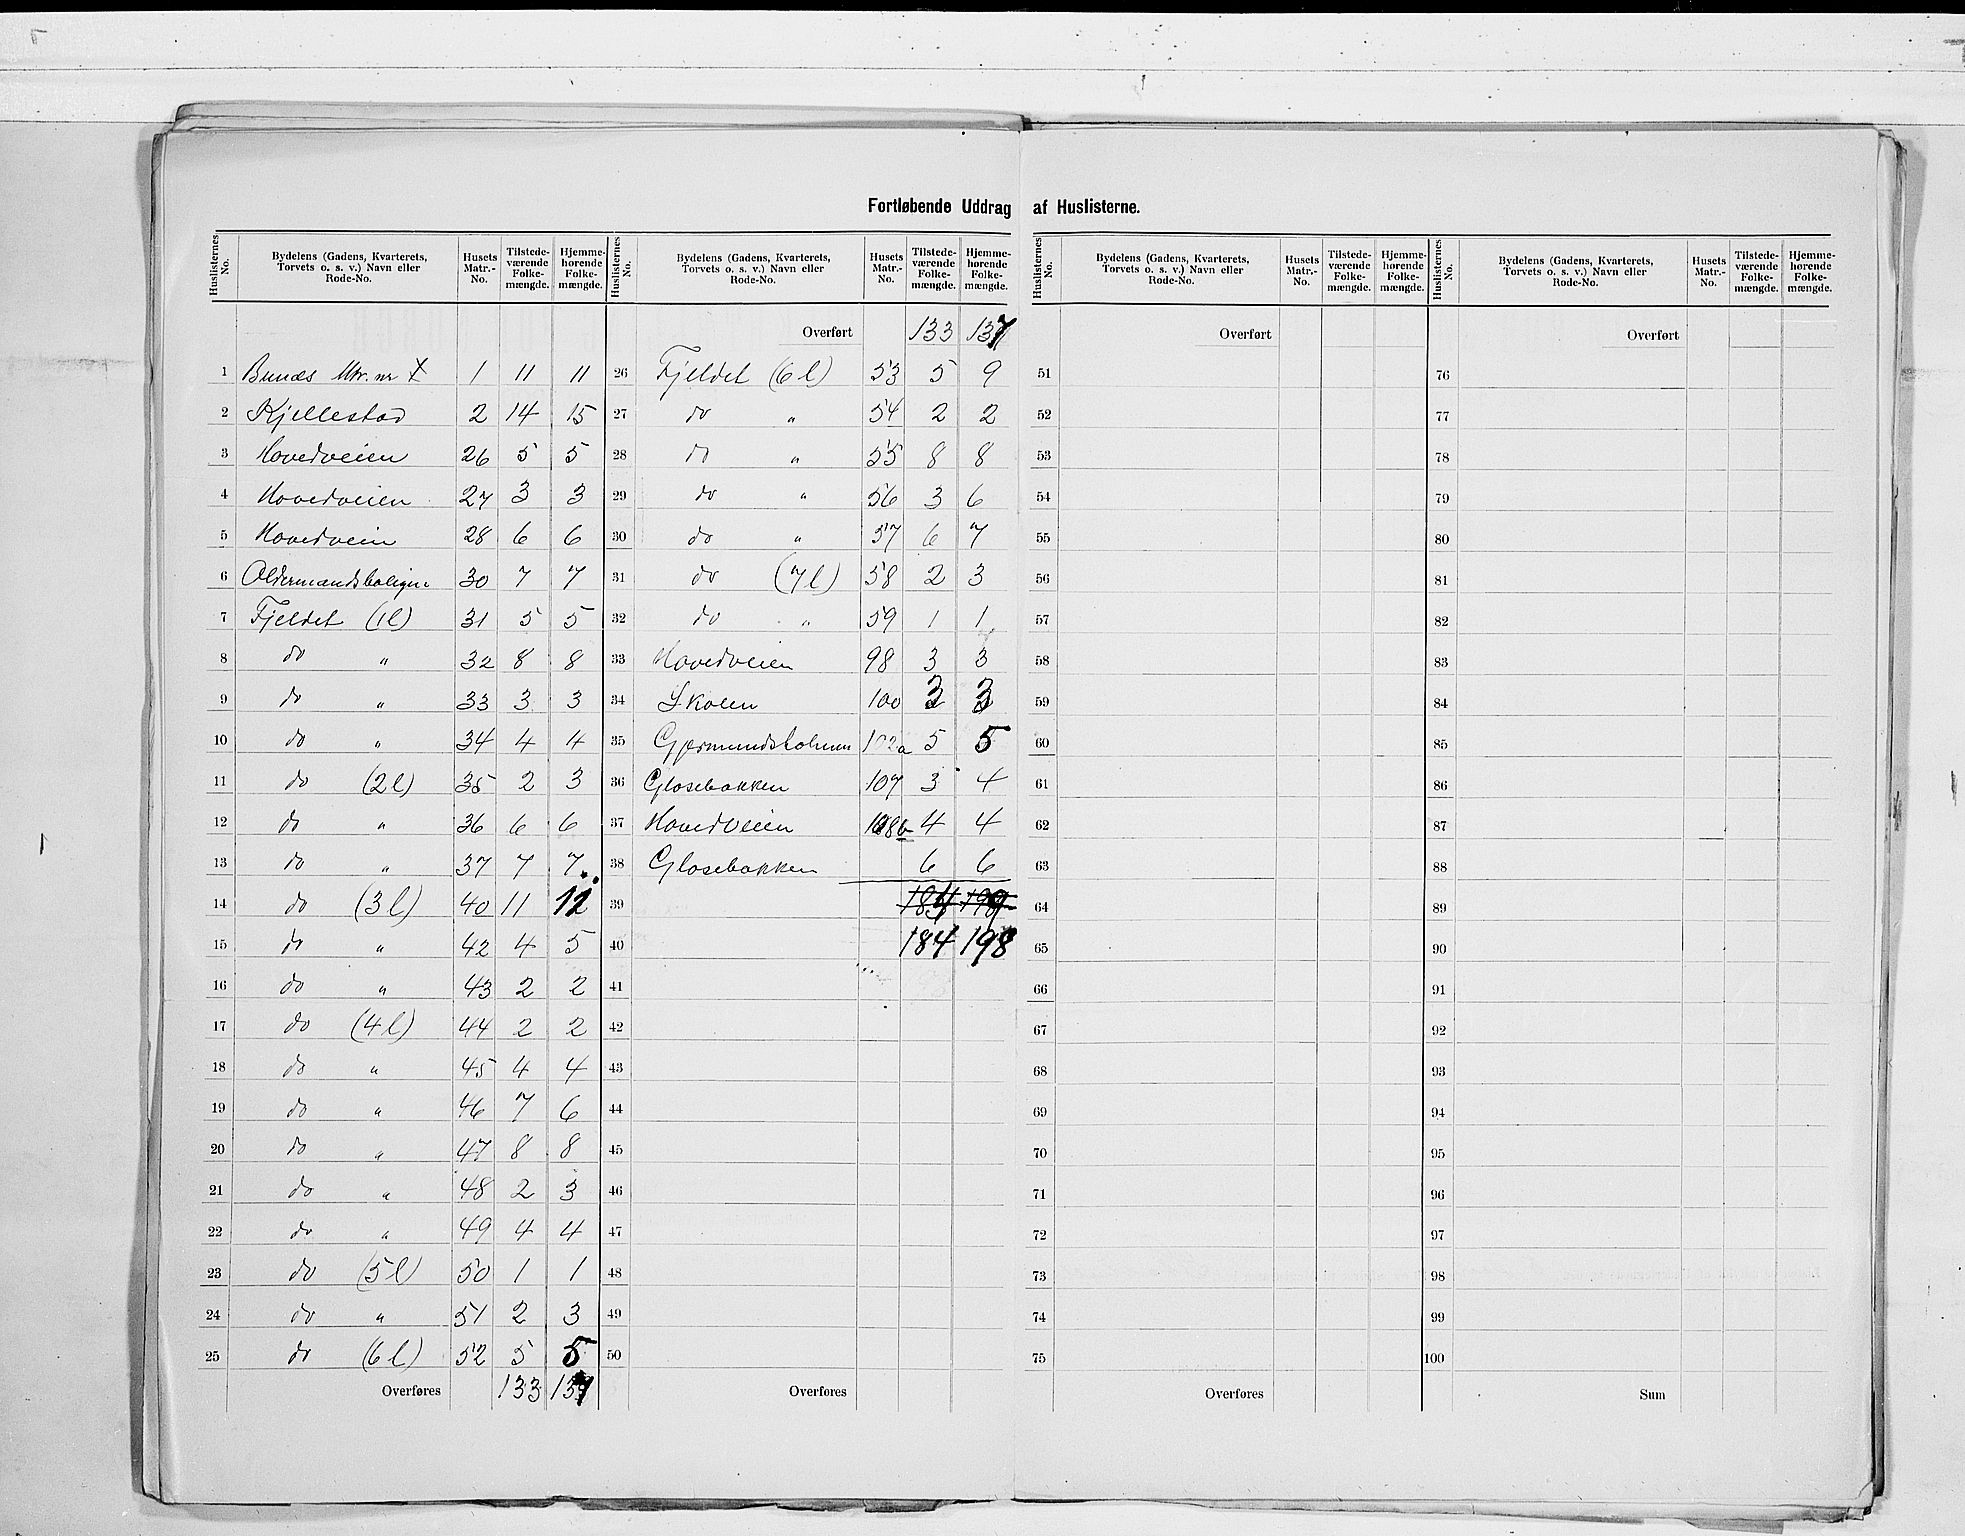 Fortløbende Uddrag af Huslisterne.
Huslisternes No. Bydelens (Gadens, Kvarterets, Torvets o. s. v.) Navn eller Rode-No. Husets Matr.-No. Tilstedeværende Folkemængde. Hjemmehørende Folkemængde.
1 Bunæs Mtr. nr 1 11 11
2 Kjellestad 2 14 15
3 Hovedveien 26 5 5
4 Hovedveien 27 3 3
5 Hovedveien 28 6 6
6 Oldermandsboligen 30 7 7
7 Fjeldet (1l) 31 5 5
8 do " 32 8 8
9 do " 33 3 3
10 do " 34 4 4
11 do (2l) 35 2 3
12 do " 36 6 6
13 do " 37 7 7
14 do (3l) 40 11 12
15 do " 42 4 5
16 do " 43 2 2
17 do (4l) 44 2 2
18 do " 45 4 4
19 do " 46 7 6
20 do " 47 8 8
21 do " 48 2 3
22 do " 49 4 4
23 do (5l) 50 1 1
24 do " 51 2 3
25 do (6l) 52 5 5
Overføres 133 137
Huslisternes No. Bydelens (Gadens, Kvarterets, Torvets o. s. v.) Navn eller Rode-No. Husets Matr.-No. Tilstedeværende Folkemængde. Hjemmehørende Folkemængde.
Overført 133 137
26 Fjeldet (6l) 53 5 9
27 do " 54 2 2
28 do " 55 8 8
29 do " 56 3 6
30 do " 57 6 7
31 do (7l) 58 2 3
32 do " 59 1 1
33 Hovedveien 98 3 3
34 Skolen 100 3 3
35 Gjermundsholmen 102a 5 5
36 Glosebakken 107 3 4
37 Hovedveien 108b 4 4
38 Glosebakken 6 6
39 184 199
40 184 198
41
42
43
44
45
46
47
48
49
50
Overføres
Huslisternes No. Bydelens (Gadens, Kvarterets, Torvets o. s. v.) Navn eller Rode-No. Husets Matr.-No. Tilstedeværende Folkemængde. Hjemmehørende Folkemængde.
Overført
51
52
53
54
55
56
57
58
59
60
61
62
63
64
65
66
67
68
69
70
71
72
73
74
75
Overføres
Huslisternes No. Bydelens (Gadens, Kvarterets, Torvets o. s. v.) Navn eller Rode-No. Husets Matr.-No. Tilstedeværende Folkemængde. Hjemmehørende Folkemængde.
Overført
76
77
78
79
80
81
82
83
84
85
86
87
88
89
90
91
92
93
94
95
96
97
98
99
100
Sum